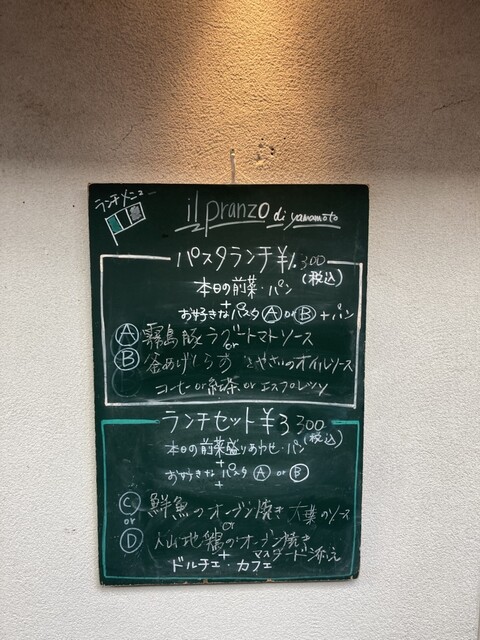 ランチメニュー
il pranzo di yamamoto
パスタランチ ¥1.300
(税込)
本日の前菜・パン
+
お好きなパスタ Ⓐ or Ⓑ + パン
Ⓐ 霧島豚ラグートマトソース
or
Ⓑ 釜あげしらす とやさいのオイルソース
コーヒー or 紅茶 or エスプレッソ
ランチセット ¥3300
(税込)
本日の前菜盛りあわせ・パン
+
お好きなパスタ Ⓐ or Ⓑ
+
Ⓒ 鮮魚のオーブン焼き 大葉のソース
or
or
Ⓓ 地鶏のオーブン焼き
+ マスタード添え
ドルチェ・カフェ